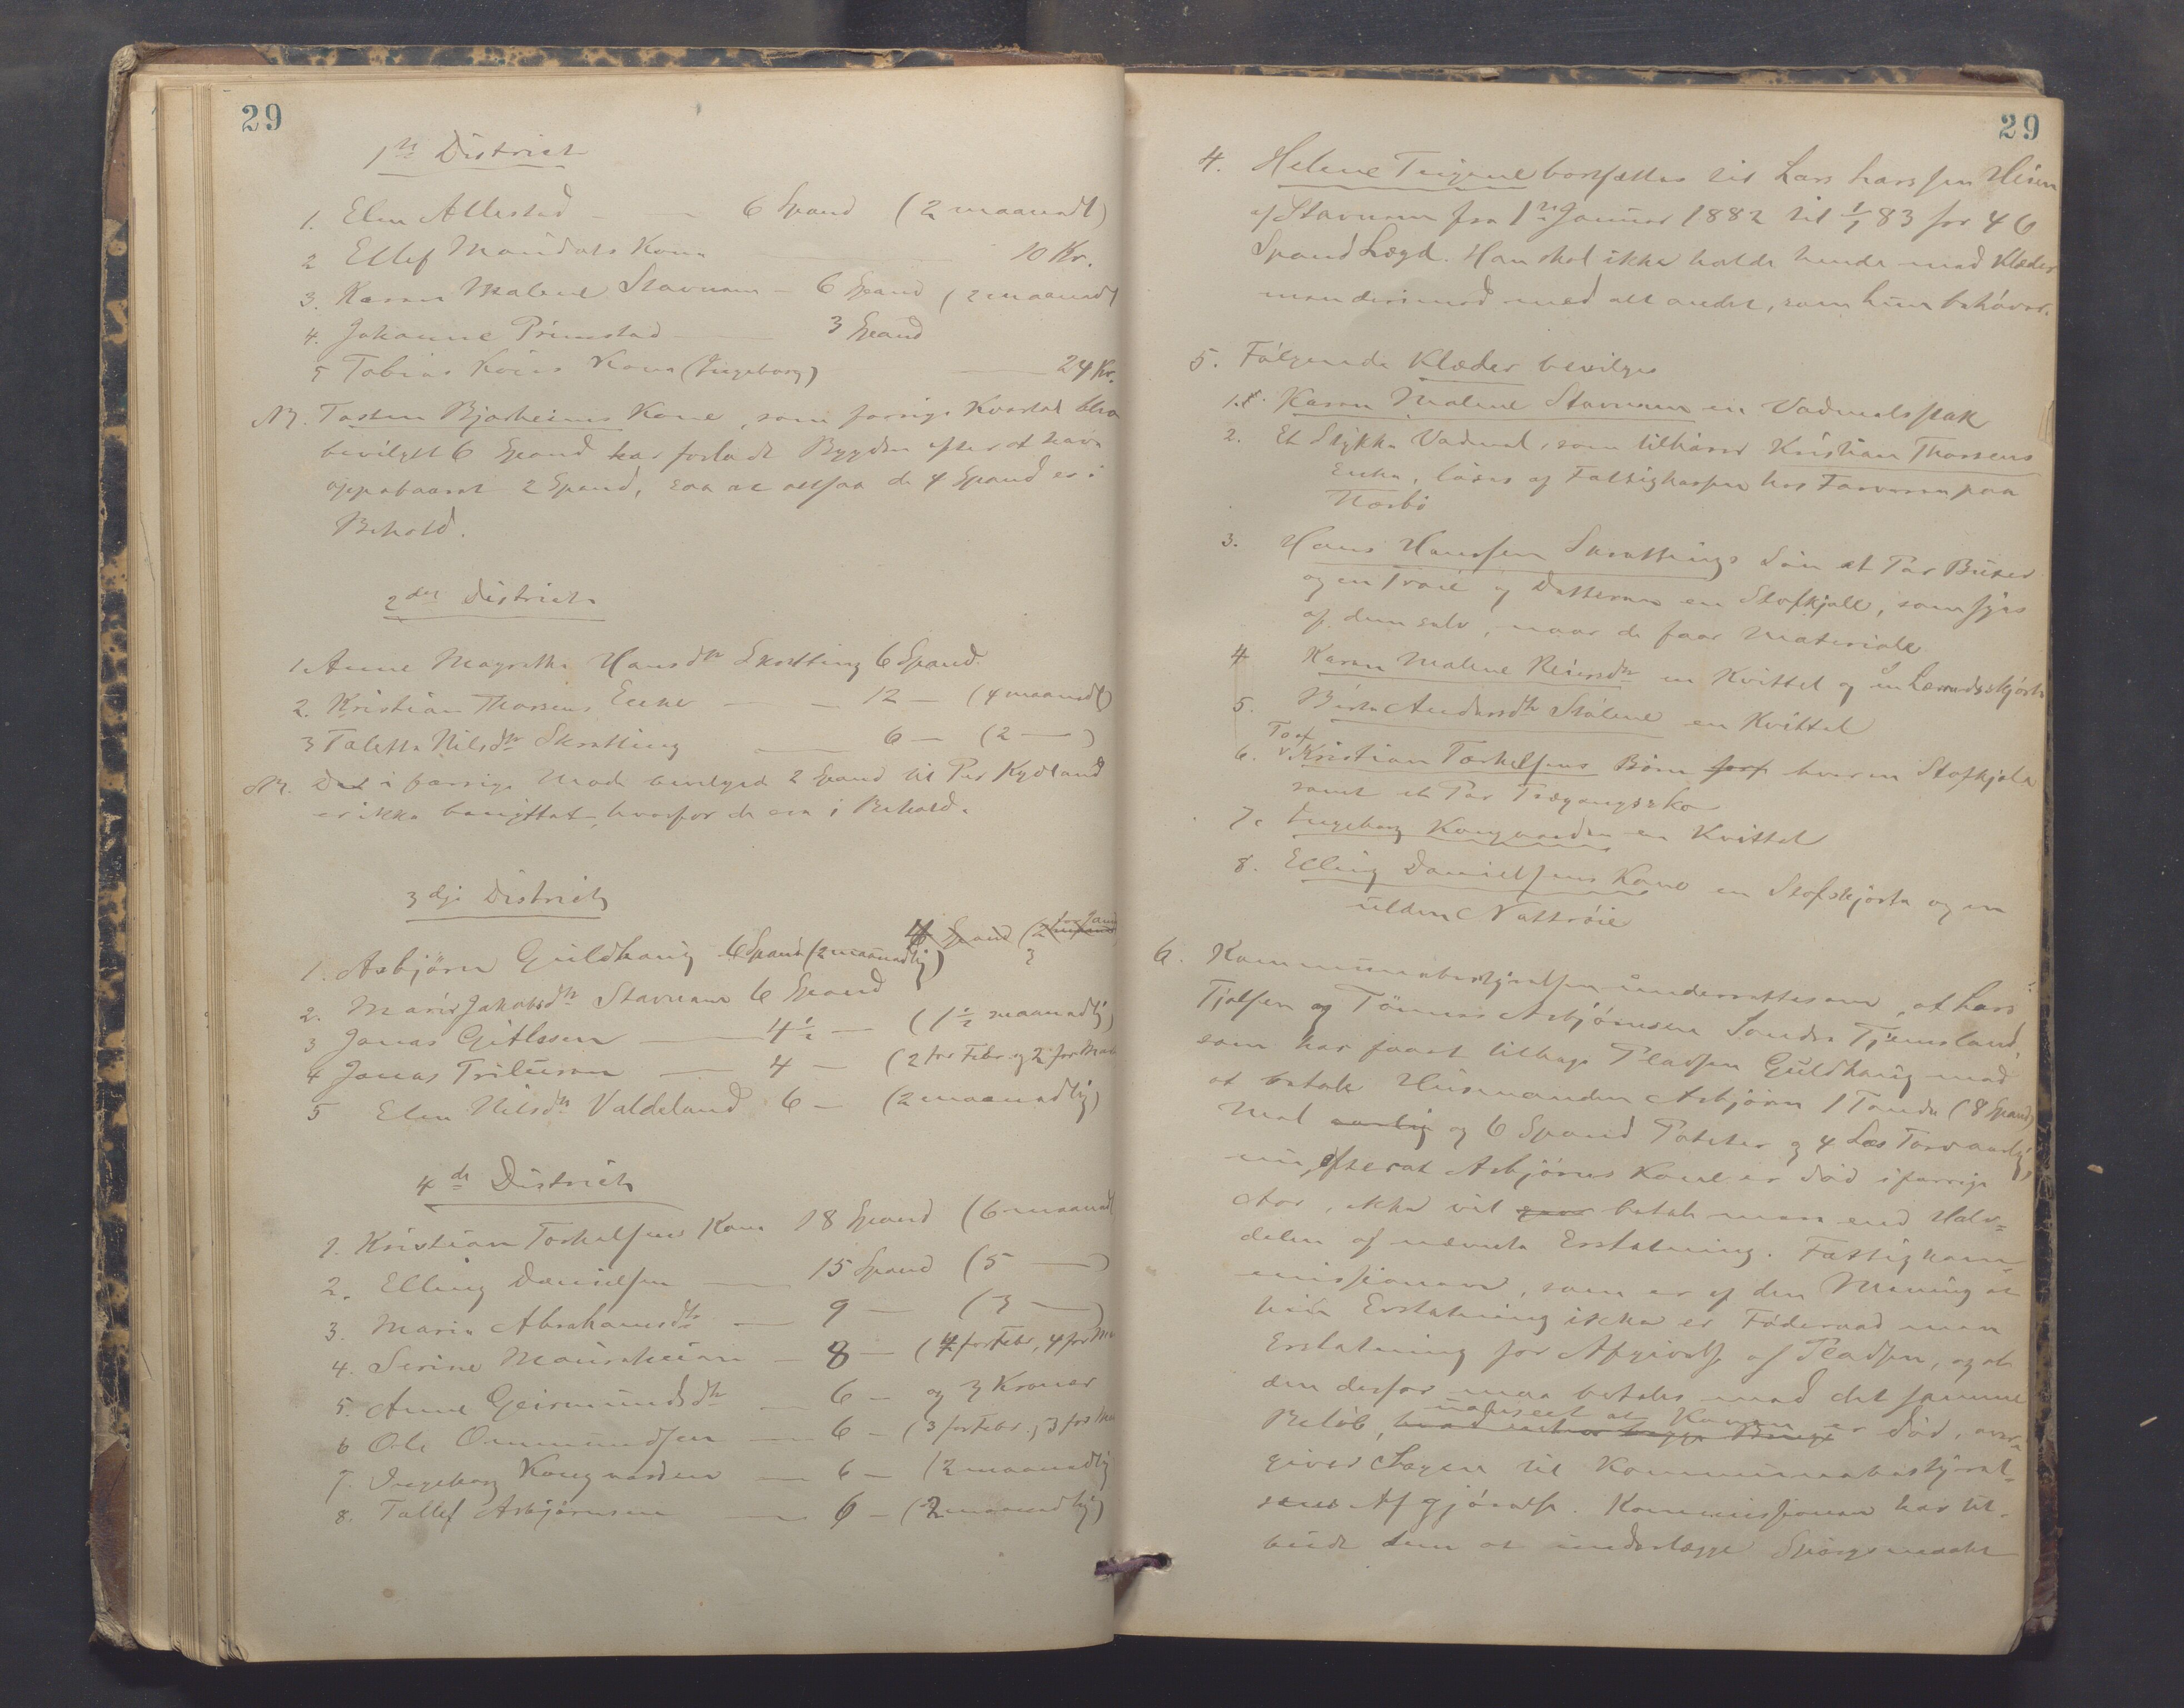 29
1ste District
1. Elen Allestad — 6 Spand (2 maanedl)
2 Ellef Maudals Kone — 10 Kr.
3. Karen Malene Stavnam — 6 Spand (2 maanedl
4. Johanne Primstad — 3 Spand
5 Tobias Köies Kone (Ingeborg) — 24 Kr.
NB. Tosten Bjorheims Kone, som forrige Kvartal blev
bevilget 6 Spand har forladt Bygden efter at have
oppebaaret 2 Spand, saa at altsaa de 4 Spand er i
Behold.
2den District
1. Anne Magrethe Hansdtr Skratting 6 Spand
2. Kristian Thorsens Enke — 12 — (4 maanedl)
3 Taletta Nilsdtr Skratting — 6 — (2 —)
NB. Det i forrige Mode bevilgede 2 Spand til Per Kydland
er ikke benyttet, hvorfor de ere i Behold.
3dje District
1. Asbjörn Guldhaug 6 Spand (2 maanedlig)
2. Marie Jakobsdtr Stavnam 6 Spand
3 Jonas Gitlesen — 4½ — (1½ maanedlig)
4 Jonas — 4 — (2 for Febr. og 2 for Mar
5 Elen Nilsdtr Valdeland 6 — (2 maanedlig)
4de District
1. Kristian Torkelsens Kone 18 Spand (6 maanedl
2. Elling Danielsen — 15 Spand (5 —)
3. Maria Abrahamsdtr — 9 — (3 —)
4. Serine — 8 — (4 for Febr, 4 for Mar
5. Anne Geirmundsdtr — 6 — og 3 Kroner
6 Ole Ommundsen — 6 — (3 for Febr., 3 for Mar
7. Ingeborg Kongevarden — 6 — (2 maanedlig
8. Tallef Asbjörnsen — 6 — (2 maanedlig)
29
4. Helene Tuigene bortsættes til Lars Larssen
af Stavnam fra 1ste Januar 1882 til 1/1 83 for 46
Spand Lægd. Han skal ikke holde hende med Klæder
men derimod med alt andet, som hun behöver.
5. Fölgende Klæder bevilges
1. Karen Malene Stavnam en Vadmelsstak
2. Et Stykke Vadmel, som tilhörer Kristian Thorsens
Enke, löses af Fattigkassen hos Farveren paa
Nærbö
3. Hans Hanssen Skrattings Sön et Par Buxer
og en Tröie og Datteren en Stofkjole, som syes
af dem selv, naar de faar Materiale
4 Karen Malene Reiersdtr en Kvittel og en Lerredsskjorte
5. Birte Andersdtr Stölene en Kvittel
6. To af Kristian Torkelsens Börn hver en Stofkjole
samt et Par Trægangssko
7. Ingeborg Kongevarden en Kvittel
8. Elling Danielsens Kone en Stofskjorte og en
ulden Nattröie
6. Kommunebestyrelsen underrettes om, at Lars
Tjølsen og Tönnes Asbjörnsen Söndre Tjemsland,
som har faaet tilbage Pladsen Guldhaug mod
at betale Husmanden Asbjörn 1 Tønde (8 Spand)
Mel aarlig og 6 Spand Poteter og 4 Læs Torv aarlig,
nu, efter at Asbjörns Kone er död i forrige
Aar, ikke vil betale mere end Halv-
delen af nævnte Erstatning. Fattigkom-
missionen, som er af den Mening at
hin Erstatning ikke er Föderaad men
Erstatning for Afgivelse af Pladsen, og at
den derfor maa betales med det samme
Belöb, uanseet at Konen er död, over-
giver Sagen til Kommunebestyrel-
sens Afgjörelse. Kommissionen har til-
budt dem at underlægge Spörgsmaalet